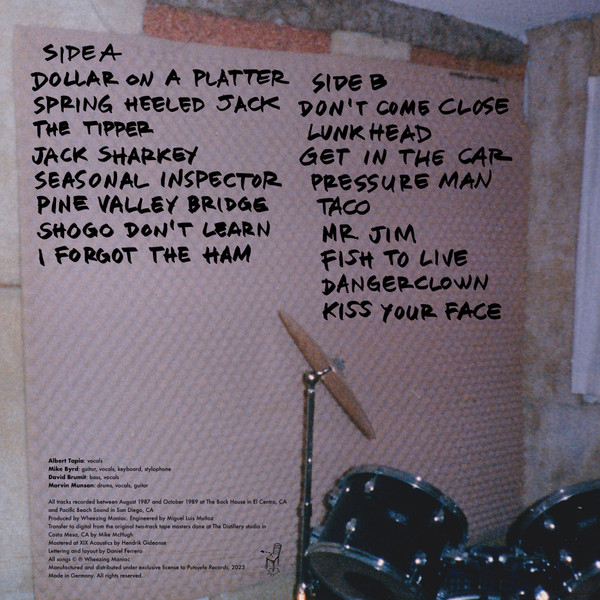 SIDE A
DOLLAR ON A PLATTER
SPRING HEELED JACK
THE TIPPER
JACK SHARKEY
SEASONAL INSPECTOR
PINE VALLEY BRIDGE
SHOGO DON'T LEARN
I FORGOT THE HAM
SIDE B
DON'T COME CLOSE
LUNKHEAD
GET IN THE CAR
PRESSURE MAN
TACO
MR JIM
FISH TO LIVE
DANGERCLOWN
KISS YOUR FACE
Albert Tapia: vocals
Mike Byrd: guitar, vocals, keyboard, stylophone
David Brumit: bass, vocals
Marvin Munson: drums, vocals, guitar
All tracks recorded between August 1987 and October 1989 at The Back House in El Centro, CA
and Pacific Beach Sound in San Diego, CA
Produced by Wheezing Maniac. Engineered by Miguel Luis Muñoz
Transfer to digital from the original two-track tape masters done at The Distillery studio in
Costa Mesa, CA by Mike McHugh
Mastered at XIX Acoustics by Hendrik Gideonse
Lettering and layout by Daniel Ferrera
All songs © ℗ Wheezing Maniac
Manufactured and distributed under exclusive license to Putojefe Records, 2023
Made in Germany. All rights reserved.